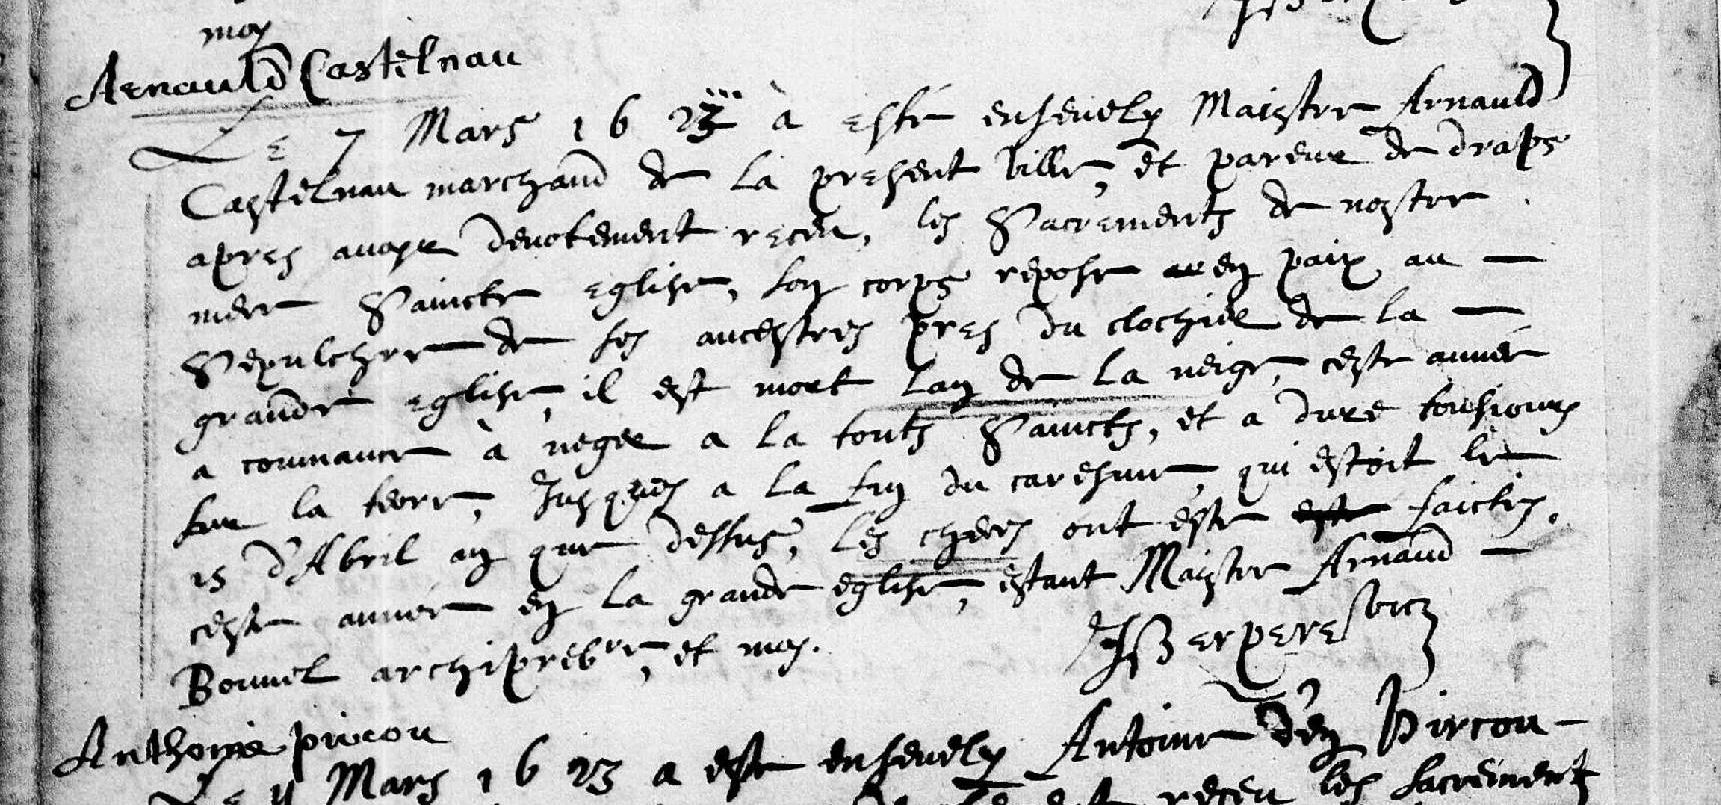 moy
Arnauld Castelnau
Le 7 Mars 1623 à esté ensevely Maistre Arnauld
Castelnau marchand de la present ville, et pareur de draps
apres avoyr devotement receu, les Sacrements de nostre
mere Saincte eglise, son corps repose en paix au
Sepulchre de ses ancestres pres du clochier de la
grande eglise, il est mort lan de la neige, ceste année
a commance à neger a la touts Saincts, et a dure tousiours
sur la terre, Jusques a la fin du caresme, qui estoit le
15 d'Abril an que dessus, les cheres ont este este faictes,
ceste année en la grande eglise, estant Maistre Arnaud
Bonnel archiprebre, et moy.
Anthoine pircou
Le 11 Mars 1623 a este ensevely Antoine d'en Pircou
receu les sacrements